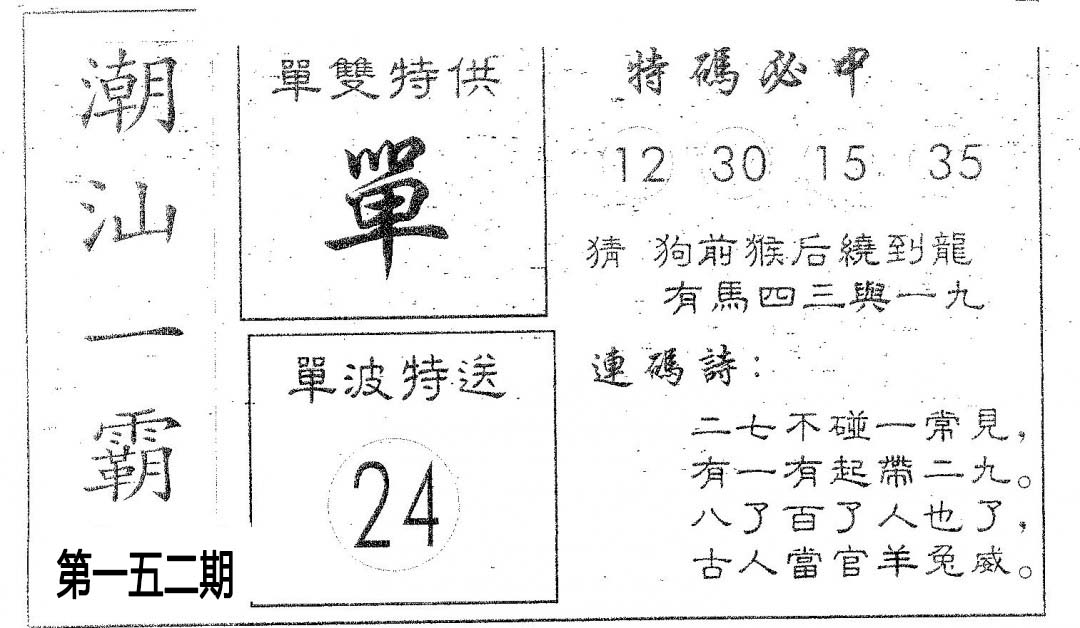 潮汕一霸
第一五二期
單雙特供
單
單波特送
24
特碼必中
12 30 15 35
猜 狗前猴后繞到龍
有馬四三與一九
連碼詩：
二七不碰一常見，
有一有起帶二九。
八了百了人也了，
古人當官羊兔威。